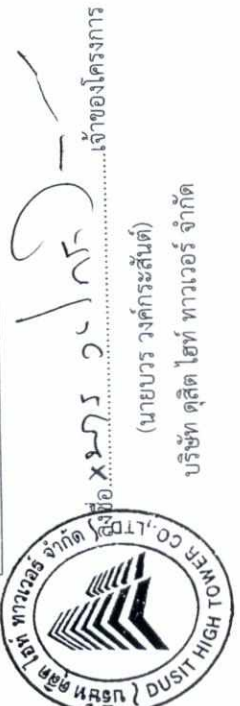 ลงชื่อ....................เจ้าของโครงการ
(นายบวร วงค์กระสันต์)
บริษัท ดุสิต ไฮท์ ทาวเวอร์ จำกัด
บริษัท ดุสิต ไฮท์ ทาวเวอร์ จำกัด
DUSIT HIGH TOWER CO.,LTD.